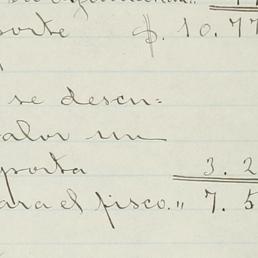 porte $. 10.77
se descu=
valor un
porta 3.2
para el fisco.„ 7.5